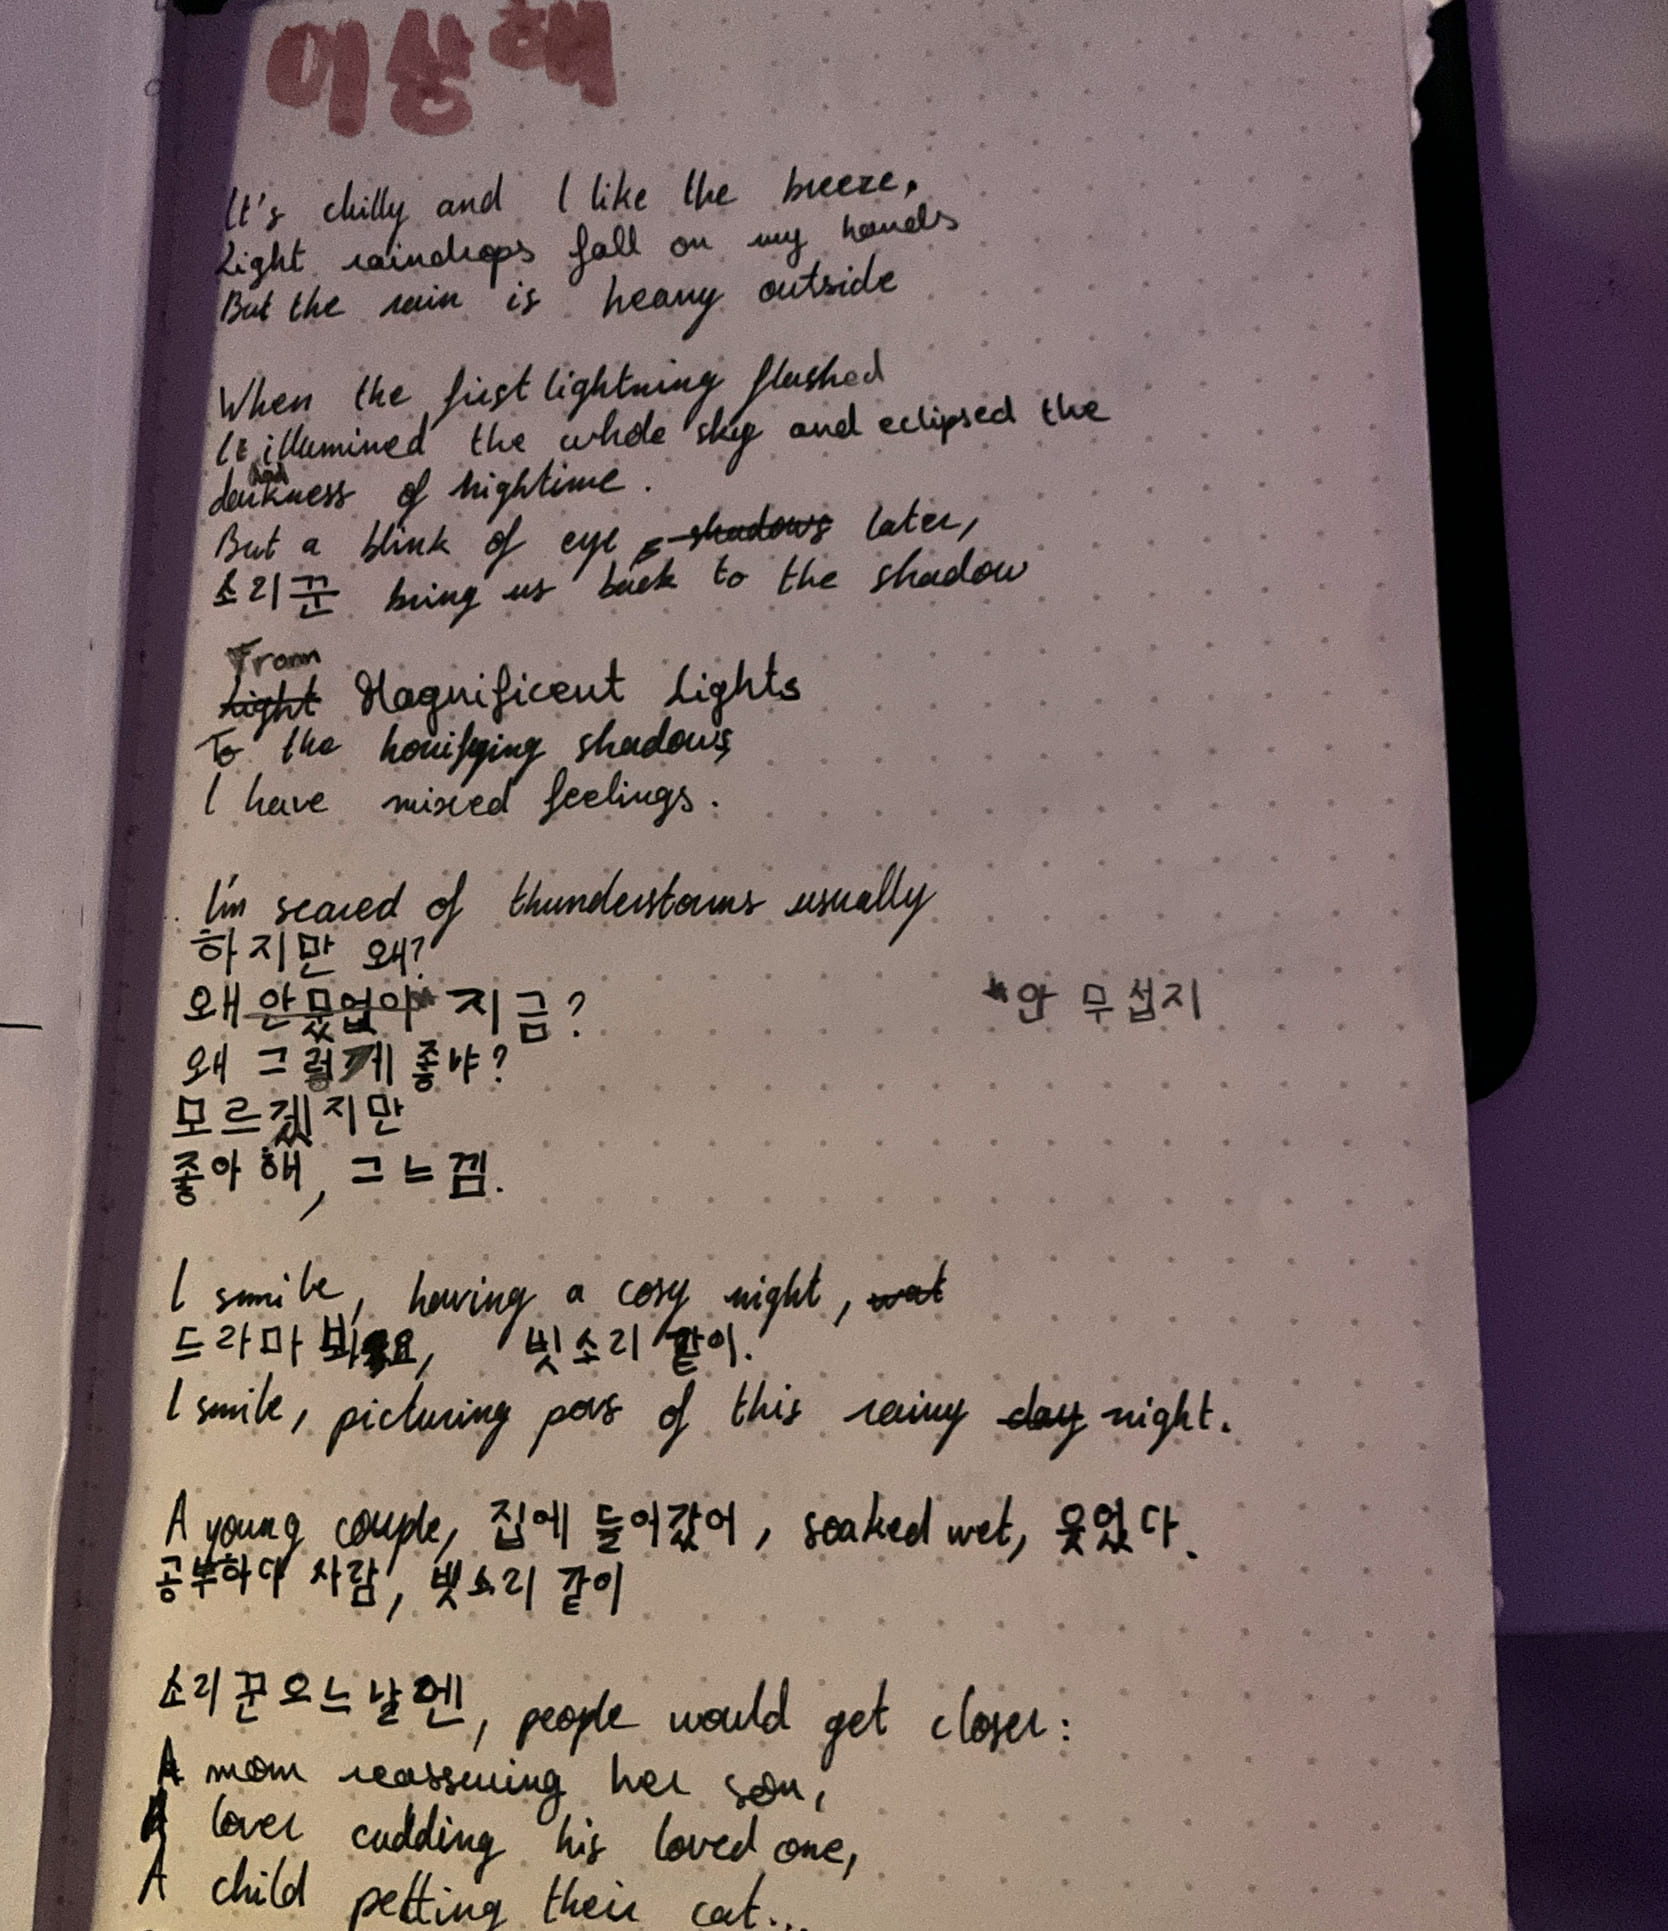 이상해
It's chilly and I like the breeze,
Light raindrops fall on my hands
But the rain is heavy outside
When the first lightning flashed
It illumined the whole sky and eclipsed the
had
darkness of nightime.
But a blink of eye shadows later,
소리꾼 bring us back to the shadow
From
Light Magnificent Lights
To the horrifying shadows
I have mixed feelings.
I'm scared of thunderstorms usually
하지만 왜?
왜 안 뭀없이* 지금?
*안 무섭지
왜 그렇게 좋야?
모르겠지만
좋아해, 그 느낌.
I smile, having a cosy night, wat
드라마 봐요, 빗소리 같이.
I smile, picturing povs of this rainy day night.
A young couple, 집에 들어갔어, soaked wet, 웃었다.
공부하다 사람, 빗소리 같이
소리꾼 오느 날엔, people would get closer:
A mom reassuring her son,
A lover cudding his loved one,
A child petting their cat...